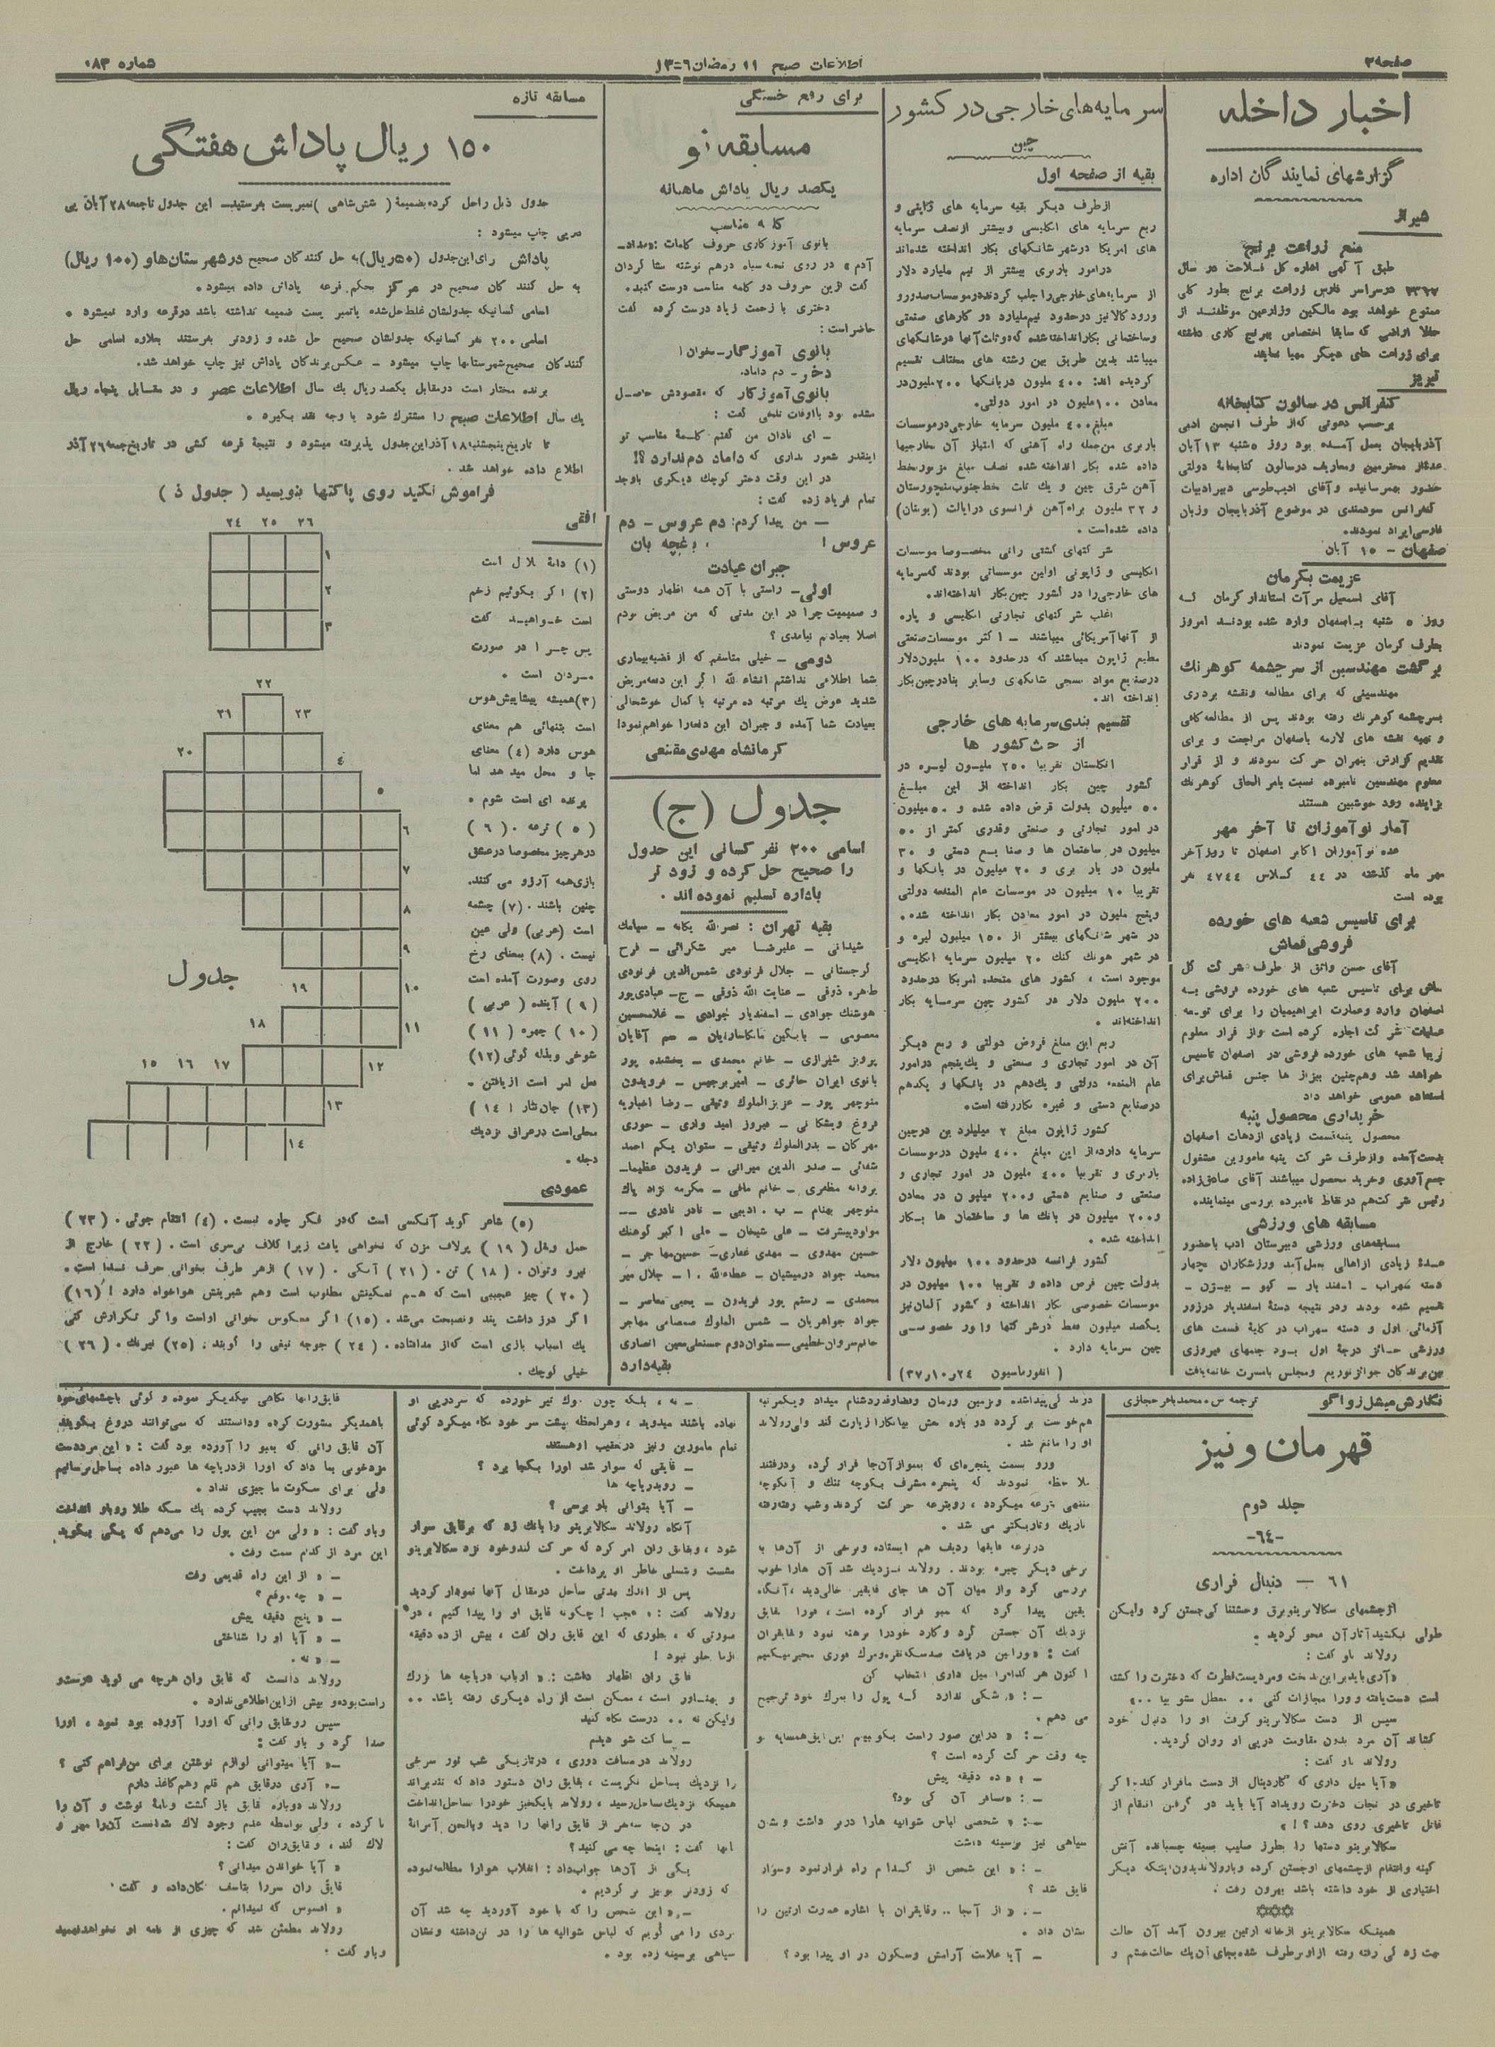 صفحه ۲
اطلاعات صبح ۱۱ رمضان ۱۳۵۶
شماره ۰۸۳
اخبار داخله
گزارشهای نمایندگان اداره
شیراز
منع زراعت برنج
طبق آگهی اداره کل فلاحت در سال
در سراسر فارس زراعت برنج بطور کلی
ممنوع خواهد بود مالکین وزارعین موظفند از
حالا اراضی که سابقا اختصاص ببرنج کاری داشته
برای زراعت های دیگر مهیا نمایند
تبریز
کنفرانس در سالون کتابخانه
برحسب دعوتی که از طرف انجمن ادبی
آذربایجان بعمل آمده بود روز ۵شنبه ۱۳ آبان
عده‌ای از محترمین ومعارف در سالون کتابخانهٔ دولتی
حضور بهمرسانیده وآقای ادیب‌طوسی دبیر ادبیات
کنفرانس سودمندی در موضوع آذربایجان وزبان
فارسی ایراد نمودند.
صفهان - ۱۵ آبان
عزیمت بکرمان
آقای اسمعیل مرآت استاندار کرمان که
روز ۵ شنبه باصفهان وارد شده بودند امروز
بطرف کرمان عزیمت نمودند
برگشت مهندسین از سرچشمه کوهرنك
مهندسینی که برای مطالعه ونقشه برداری
بسرچشمه کوهرنك رفته بودند پس از مطالعه کافی
و تهیه نقشه های لازمه باصفهان مراجعت و برای
تقدیم گزارش بتهران حرکت نمودند و از قرار
معلوم مهندسین نامبرده نسبت بامر الحاق کوهرنك
بزاینده رود خوشبین هستند
آمار نوآموزان تا آخر مهر
عده نوآموزان اکابر اصفهان تا روز آخر
مهر ماه گذشته در ۴۴ کلاس ۴۷۴۴ نفر
بوده است
برای تاسیس شعبه های خورده
فروشی قماش
آقای حسن واثق از طرف شرکت کل
برای تاسیس شعبه های خورده فروشی به
اصفهان وارد وعمارت ابراهیمیان را برای توسعه
عملیات شرکت اجاره کرده است واز قرار معلوم
قریبا شعبه های خورده فروشی در اصفهان تاسیس
خواهد شد وهم‌چنین بیزاز ها جنس قماش برای
استفاده عمومی خواهد داد
خریداری محصول پنبه
محصول پنبه‌قسمت زیادی ازدهات اصفهان
بدست‌آمده وازطرف شرکت پنبه مامورین مشغول
جمع‌آوری وخرید محصول میباشند آقای صادق‌زاده
رئیس شرکت‌هم در نقاط نامبرده بررسی مینمایند
مسابقه های ورزشی
مسابقه‌های ورزشی دبیرستان ادب باحضور
عدهٔ زیادی ازاهالی بعمل‌آمد ورزشکاران بچهار
دسته سهراب - اسفندیار - گیو - بیژن -
تقسیم شده بودند ودر نتیجه دستهٔ اسفندیار درزور
آزمائی اول و دسته سهراب در کلیهٔ قسمت های
ورزشی حائز درجهٔ اول بود
سرمایه‌های خارجی در کشور
چین
بقیه از صفحه اول
ازطرف دیگر بقیه سرمایه های ژاپنی و
ربع سرمایه های انگلیسی وبیشتر ازنصف سرمایه
های امریکا درشهر شانگهای بکار انداخته شده‌اند
درامور باربری بیشتر از نیم ملیارد دلار
از سرمایه‌های خارجی‌را جلب کردند ودرموسسات صدور و
ورود کالا نیز درحدود نیم‌ملیارد در کارهای صنعتی
وساختمانی بکار انداخته شده که دو ثلث آنها درشانگهای
میباشد بدین طریق بین رشته های مختلف تقسیم
گردیده اند: ۴۰۰ ملیون دربانکها ۲۰۰ ملیون در
معادن ۱۰۰ ملیون در امور دولتی.
مبلغ ۴۰۰ ملیون سرمایه خارجی درموسسات
باربری من‌جمله راه آهنی که امتیاز آن بخارجیها
داده شده بکار انداخته شده نصف مبلغ مزبور بخط
آهن شرق چین و یك ثلث بخط جنوب منچورستان
و ۳۲ ملیون براه‌آهن فرانسوی درایالت (یونان)
داده شده‌است.
شرکتهای کشتی رانی مخصوصا موسسات
انگلیسی و ژاپونی اولین موسساتی بودند که سرمایه
های خارجی‌را در کشور چین بکار انداخته‌اند.
اغلب شرکتهای تجارتی انگلیسی و پاره
از آنها آمریکائی میباشند - اکثر موسسات صنعتی
متعلق بژاپون میباشند که درحدود ۱۰۰ ملیون دلار
درصنایع مواد نسجی شانگهای وسایر بنادر چین بکار
انداخته اند.
تقسیم بندی سرمایه های خارجی
از حیث کشور ها
انگلستان تقریبا ۲۵۰ ملیون لیره در
کشور چین بکار انداخته از این مبلغ
۵۰ میلیون بدولت قرض داده شده و ۵۰ میلیون
در امور تجارتی و صنعتی وقدری کمتر از ۵۰
میلیون در ساختمان ها و صنایع دستی و ۳۰
ملیون در باربری و ۲۰ ملیون در بانکها و
تقریبا ۱۰ میلیون در موسسات عام المنفعه دولتی
وپنج ملیون در امور معادن بکار انداخته شده.
در شهر شانگهای بیشتر از ۱۵۰ میلیون لیره و
در شهر هونك کنك ۲۰ میلیون سرمایه انگلیسی
موجود است، کشور های متحده امریکا درحدود
۲۰۰ ملیون دلار در کشور چین سرمایه بکار
انداخته‌اند.
ربع این مبلغ قروض دولتی و ربع دیگر
آن در امور تجاری و صنعتی و یك‌پنجم درامور
عام المنفعه دولتی و یکدهم در بانکها و یکدهم
درصنایع دستی و غیره بکاررفته است.
کشور ژاپون مبلغ ۲ میلیارد ین درچین
سرمایه دارد؛ از این مبلغ ۴۰۰ ملیون درموسسات
باربری و تقریبا ۴۰۰ ملیون در امور تجاری و
صنعتی و صنایع دستی و ۲۰۰ میلیون در معادن
و ۲۰۰ میلیون در بانك ها و ساختمان ها بکار
انداخته شده.
کشور فرانسه درحدود ۱۰۰ میلیون دلار
بدولت چین قرض داده و تقریبا ۱۰۰ میلیون در
موسسات خصوصی بکار انداخته و کشور آلمان نیز
یکصد میلیون فقط درشرکتها وامور خصوصی
چین سرمایه دارد.
(انفورماسیون ۲۴ر۱۰ر۳۷)
برای رفع خستگی
مسابقه نو
یکصد ریال پاداش ماهیانه
کلمه مناسب
بانوی آموزگاری حروف کلمات: «داماد-
آدم» در روی تخته‌سیاه درهم نوشته بشاگردان
گفت ازین حروف دو کلمه مناسب درست کنید.
دختری با زحمت زیاد درست کرده گفت
حاضر است:
بانوی آموزگار - بخوان!
دختر - دم داماد.
بانوی آموزگار که مقصودش حاصل
نشده بود بااوقات تلخی گفت:
- ای نادان من گفتم کلمهٔ مناسب تو
اینقدر شعور نداری که داماد دم ندارد؟!
در این وقت دختر کوچك دیگری باوجد
تمام فریاد زده گفت:
- من پیدا کردم: دم عروس - دم
عروس! غنچه بان
جبران عیادت
اولی - راستی با آن همه اظهار دوستی
و صمیمیت چرا در این مدتی که من مریض بودم
اصلا بعیادتم نیامدی؟
دومی - خیلی متاسفم که از قضیه بیماری
شما اطلاعی نداشتم انشاءالله اگر این دفعه مریض
شدید عوض یك مرتبه ده مرتبه با کمال خوشحالی
بعیادت شما آمده و جبران این دفعه‌را خواهم نمود!
کرمانشاه مهدی مقنعی
جدول (ج)
اسامی ۲۰۰ نفر کسانی این جدول
را صحیح حل کرده و زود تر
باداره تسلیم نموده اند.
بقیه تهران: نصرالله یگانه - سیامك
شیدانی - علیرضا میر شکرائی - فرح
گرجستانی - جلال فرنودی شمس‌الدین فرنودی
طاهره ذوقی - عنایت الله ذوقی - ج - عبادی‌پور
هوشنك جوادی - اسفندیار جوادی - غلامحسین
پرویز شیرازی - خانم محمدی - بخشنده پور
بانوی ایران حائری - امیر برجیس - فریدون
منوچهر پور - عزیزالملوك وثیقی - رضا اخباریه
مهرکان - بدرالملوك وثیقی - ستوان یکم احمد
شفائی - صدر الدین میرانی - فریدون عظیما-
پروانه مظفری - خانم مافی - مکرمه نژاد پاك
منوچهر بهنام - ب. ادیبی - نادر نادری --
مواد پیشرفت - علی شیخان - علی اکبر کوهنك
حسین مهدوی - مهدی غفاری - حسین مهاجر -
محمد جواد درمیشیان - عطاءالله. ا - جلال میر
محمدی - رستم پور فریدون - یحیی معاصر -
جواد جواهریان - شمس الملوك صمصامی مهاجر
خانم مروان خطیبی - ستوان دوم حسنعلی معین انصاری
بقیه دارد
مسابقه تازه
۱۵۰ ریال پاداش هفتگی
جدول ذیل را حل کرده بضمیمهٔ (شش‌شاهی) تمبر پست بفرستید - این جدول تا جمعه ۲۸ آبان پی
درپی چاپ میشود:
پاداش برای این جدول (۵۰ ریال) به حل کنندگان صحیح در شهرستان‌ها و (۱۰۰ ریال)
به حل کنندگان صحیح در مرکز بحکم قرعه پاداش داده میشود.
اسامی کسانیکه جدولشان غلط حل‌شده یاتمبر پست ضمیمه نداشته باشد درقرعه وارد نمیشود.
اسامی ۲۰۰ نفر کسانیکه جدولشان صحیح حل شده و زودتر بفرستند بعلاوه اسامی حل
کنندگان صحیح شهرستانها چاپ میشود - عکس برندگان پاداش نیز چاپ خواهد شد.
برنده مختار است درمقابل یکصد ریال یك سال اطلاعات عصر و در مقابل پنجاه ریال
یك سال اطلاعات صبح را مشترك شود یا وجه نقد بگیرد.
تا تاریخ پنجشنبه ۱۸ آذر این جدول پذیرفته میشود و نتیجهٔ قرعه کشی در تاریخ جمعه ۲۶ آذر
اطلاع داده خواهد شد.
فراموش نکنید روی پاکتها بنویسید (جدول ذ)
۲۴ ۲۵ ۲۶
۱
۲
۳
۲۲
۲۱ ۲۳
۲۰ ۴
۵
۶
۷
۸
۹
۱۹ ۱۰
۱۸ ۱۱
۱۵ ۱۶ ۱۷ ۱۲
۱۳
۱۴
جدول
افقی
(۱) دانهٔ لال است
(۲) اگر بگوئیم زخم
است خواهید گفت
پس چرا در صورت
مردان است.
(۳) همیشه پیشاپیش هوس
است بتنهائی هم معنای
هوس دارد (۴) معنای
جا و محل میدهد اما
پرنده ای است شوم.
(۵) ترعه. (۶)
درهرچیز مخصوصا درعشق
بازی همه آرزو می کنند.
چنین باشند. (۷) چشمه
است (عربی) ولی عین
نیست. (۸) بمعنای رخ
روی وصورت آمده است
(۹) آینده (عربی)
(۱۰) چهره (۱۱)
شوخی وبذله گوئی (۱۲)
فعل امر است ازیافتن.
(۱۳) جان‌نثار (۱۴)
محلی‌است درعراق نزدیك
دجله.
عمودی
(۵) شاعر گوید آنکسی است که‌در فکر چاره نیست. (۴) انتقام جوئی. (۲۳)
حمل ونقل (۱۹) پرلاف مزن که نخواهی یافت زیرا کلاف بی‌سری است. (۲۲) خارج از
نیرو وتوان. (۱۸) تن. (۲۱) آبکی. (۱۷) ازهر طرف بخوانی حرف نفیست.
(۲۰) چیز عجیبی است که هم نمکینش مطلوب است وهم شیرینش هواخواه دارد! (۱۶)
اگر دوز داشت پند ونصیحت می‌شد. (۱۵) اگر معکوس بخوانی اولست واگر تکرارش کنی
یك اسباب بازی است که‌از مد افتاده. (۲۴) جوجه تیغی را گویند. (۲۵) نیرنك. (۲۶)
خیلی کوچك.
نگارش میشل زواگو
ترجمه س. محمدباقر حجازی
قهرمان ونیز
جلد دوم
-۶۴-
۶۱ - دنبال فراری
ازچشمهای سکالابرینو برق وحشتناکی جستن کرد ولیکن
طولی نکشید آثار آن محو گردید.
رولاند باو گفت:
سپس از دست سکالابرینو گرفت او را دنبال خود
کشاند آن مرد بدون مقاومت درپی او روان گردید.
رولاند باو گفت:
«آیا میل داری که کاردینال از دست ما فرار کند. اگر
تاخیری در نجات دخترت رویداد آیا باید در گرفتن انتقام از
قاتل تاخیری روی دهد؟!»
سکالابرینو دستها را بطرز صلیب بسینه چسبانده آتش
کینه وانتقام ازچشمهای او جستن کرده و بارولاند بدون اینکه دیگر
اختیاری از خود داشته باشد بیرون رفت.
***
همینکه سکالابرینو ازخانه ارتین بیرون آمد آن حالت
بهت زدگی رفته رفته ازاو برطرف شده بجای آن یك حالت خشم و
او را مانع شد.
ورو بسمت پنجره‌ای که بمبو از آن‌جا فرار کرده بود رفتند
ملاحظه نمودند که پنجره مشرف بکوچه تنك و آنکوچه
منتهی بترعه میگردد، روبترعه حرکت کردند وشب رفته‌رفته
تاریك وتاریکتر می شد.
درترعه قایقها ردیف هم ایستاده وبرخی از آن‌ها به
برخی دیگر چیره بودند. رولاند نزدیك شد آن هارا خوب
بررسی کرد واز میان آن ها جای قایقی خالی دید، آنگاه
یقین پیدا کرد که بمبو فرار کرده است، فورا بقایق
نزدیك آن جستن کرد وکارد خودرا برهنه نمود وبقایقران
گفت: «ورا بین دریافت صد سکه نقره ومرك فوری مخیر میکنیم
اکنون هر کدام‌را میل داری انتخاب کن
-: «شکی ندارد که پول را بمرك خود ترجیح
می دهم.
-: «دراین صور راست بگو ببینم این قایق همسایه تو
چه وقت حرکت کرده است؟
-: «ده دقیقه پیش
-: «مسافر آن کی بود؟
-: «شخصی لباس شوالیه هارا دربر داشت ونشان
سیاهی نیز برسینه داشت
-: «این شخص از کدام راه فرار نمود وسوار
قایق شد؟
-: «از آنجا.. وقایقران با اشاره عمارت ارتین را
نشان داد.
- آیا علامت آرامش وسکون در او پیدا بود؟
- نه، بلکه چون خوك تیر خورده که سردرپی او
نهاده باشند میدوید، وهرلحظه بپشت سر خود نگاه میکرد گوئی
تمام مامورین ونیز درعقیب او هستند
- قایقی که سوار شد اورا بکجا برد؟
- رو بدریاچه ها
- آیا میتوانی باو برسی؟
آنگاه رولاند سکالابرینو را بانك زد که برقایق سوار
شود، وبقایق ران امر کرد که حرکت کند وخود نزد سکالابرینو
نشست وبتسلی خاطر او پرداخت.
پس از اندك مدتی ساحل درمقابل آنها نمودار گردید
رولاند گفت: «عجب! چگونه قایق او را پیدا کنیم، در
صورتی که، بطوری که این قایق ران گفت، بیش از ده دقیقه
ازما جلو نبود!
قایق ران اظهار داشت: «ارباب دریاچه ها بزرك
و پهناور است، ممکن است از راه دیگری رفته باشد..
ولیکن نه.. درست نگاه کنید
- ساکت شو دیدم
رولاند درمسافت دوری، درتاریکی شب نور سرخی
را نزدیك بساحل نگریست، بقایق ران دستور داد که تندبراند
همینکه نزدیك ساحل رسید، رولاند بایك‌خیز خودرا بساحل انداخت
در آنجا سه نفر از قایق رانها را دید وبالحن آمرانهٔ
بآنها گفت: اینجا چه می کنید؟
یکی از آن‌ها جوابداد: انقلاب هوارا مطالعه‌نموده
که زودتر بونیز بر گردیم.
-: «این شخص را که با خود آوردید چه شد آن
مردی را می گویم که لباس شوالیه ها را در تن‌داشته ونشان
سیاهی برسینه زده بود.
قایق‌رانها نگاهی بیکدیگر نموده و گوئی باچشمهای خود
باهمدیگر مشورت کرده ودانستند که نمی‌توانند دروغ بگویند.
آن قایق رانی که بمبو را آورده بود گفت: «این مرد دست
مزد خوبی بما داد که اورا ازدریاچه ها عبور داده بساحل برسانیم
ولی برای سکوت ما چیزی نداد.
رولاند دست بجیب کرده یك سکه طلا روباو انداخت
وباو گفت: «ولی من این پول را می‌دهم که بمن بگوئید
این مرد از کدام سمت رفت.
- «از این راه قدیمی رفت
- «چه موقع؟
- «پنج دقیقه پیش
- «آیا او را شناختی
- «نه.
رولاند دانست که قایق ران هرچه می گوید درست و
راست بوده و بیش ازاین اطلاعی ندارد.
سپس رو بقایق رانی که اورا آورده بود نمود، اورا
صدا کرد و باو گفت:
-«آیا میتوانی لوازم نوشتن برای من فراهم کنی؟
-«آری درقایق هم قلم وهم کاغذ دارم
رولاند دوباره بقایق باز گشت ونامهٔ نوشت و آن را
تا کرده، ولی بواسطه عدم وجود لاك نتوانست آن‌را مهر و
لاك کند، و بقایق‌ران گفت:
«آیا خواندن میدانی؟
قایق ران سررا بتاسف تکان‌داده و گفت:
«افسوس که نمیدانم.
رولاند مطمئن شد که چیزی از نامه او نخواهد فهمید
وباو گفت.